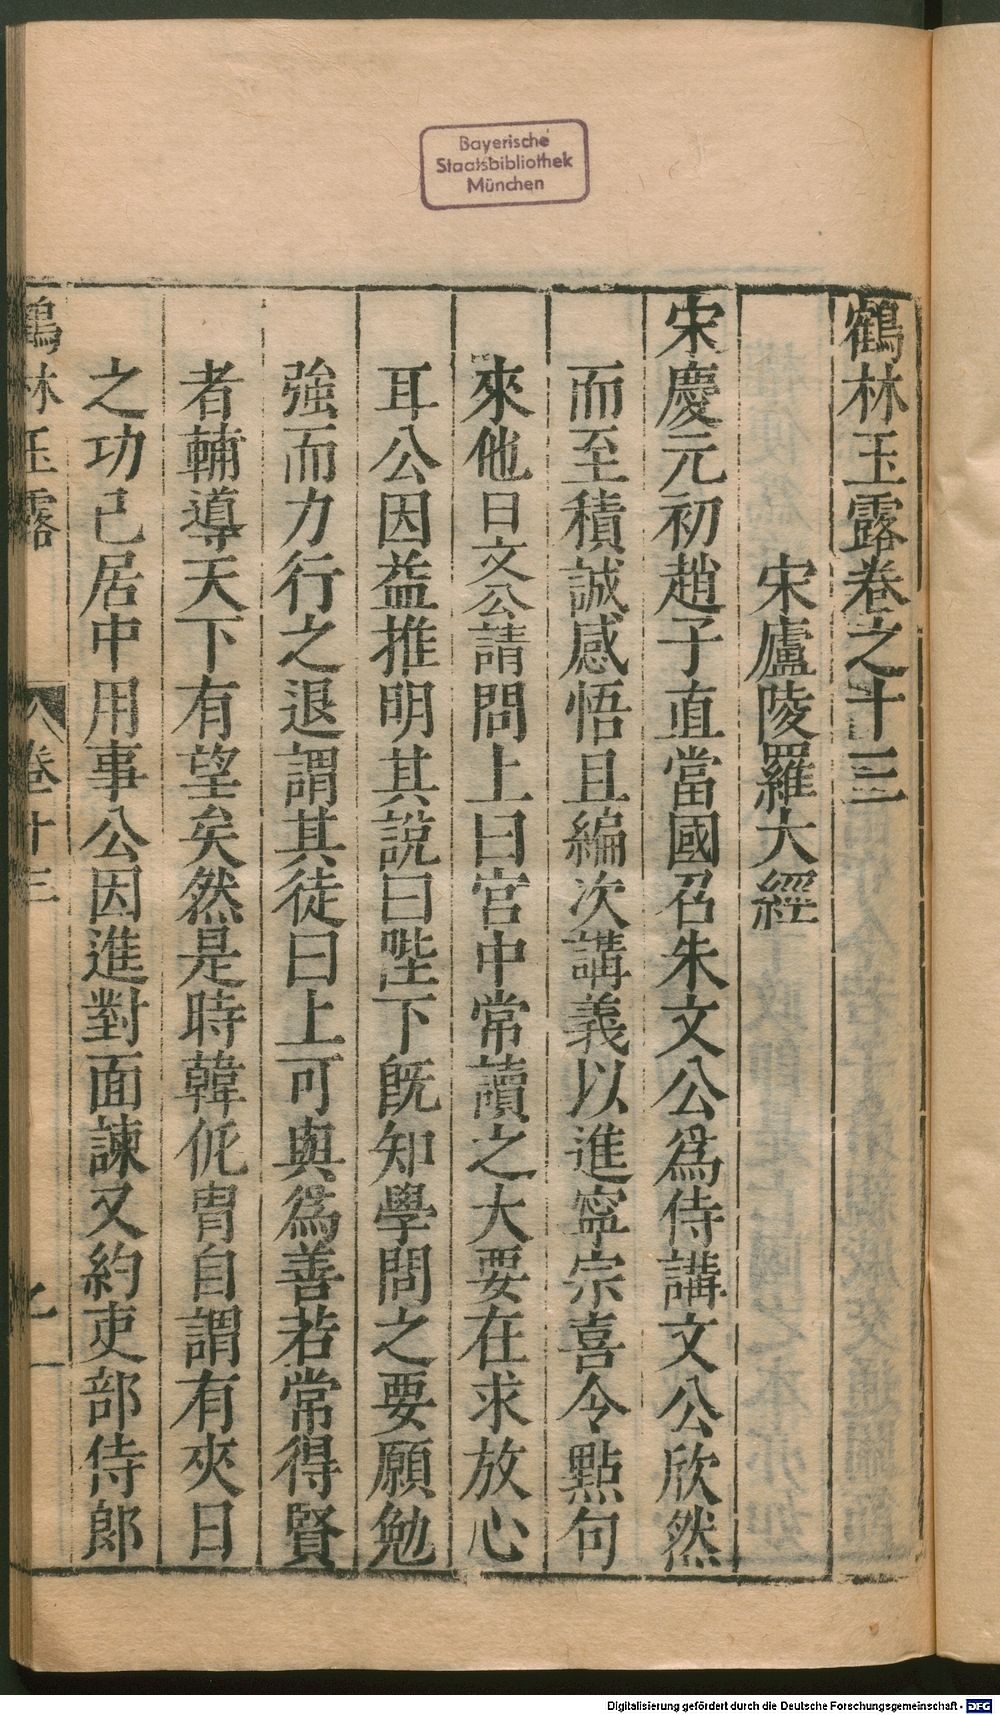 Bayerische
Staatsbibliothek
München
鶴林玉露卷之十三
宋廬陵羅大經
宋慶元初趙子直當國召朱文公爲侍講文公欣然
而至積誠感悟且編次講義以進寧宗喜令點句
來他日文公請問上曰宮中常讀之大要在求放心
耳公因益推明其說曰陛下旣知學問之要願勉
強而力行之退謂其徒曰上可與爲善若常得賢
者輔導天下有望矣然是時韓侂冑自謂有夾日
之功已居中用事公因進對面諫又約吏部侍郎
鶴林玉露 卷十三 一
Digitalisierung gefördert durch die Deutsche Forschungsgemeinschaft - DFG